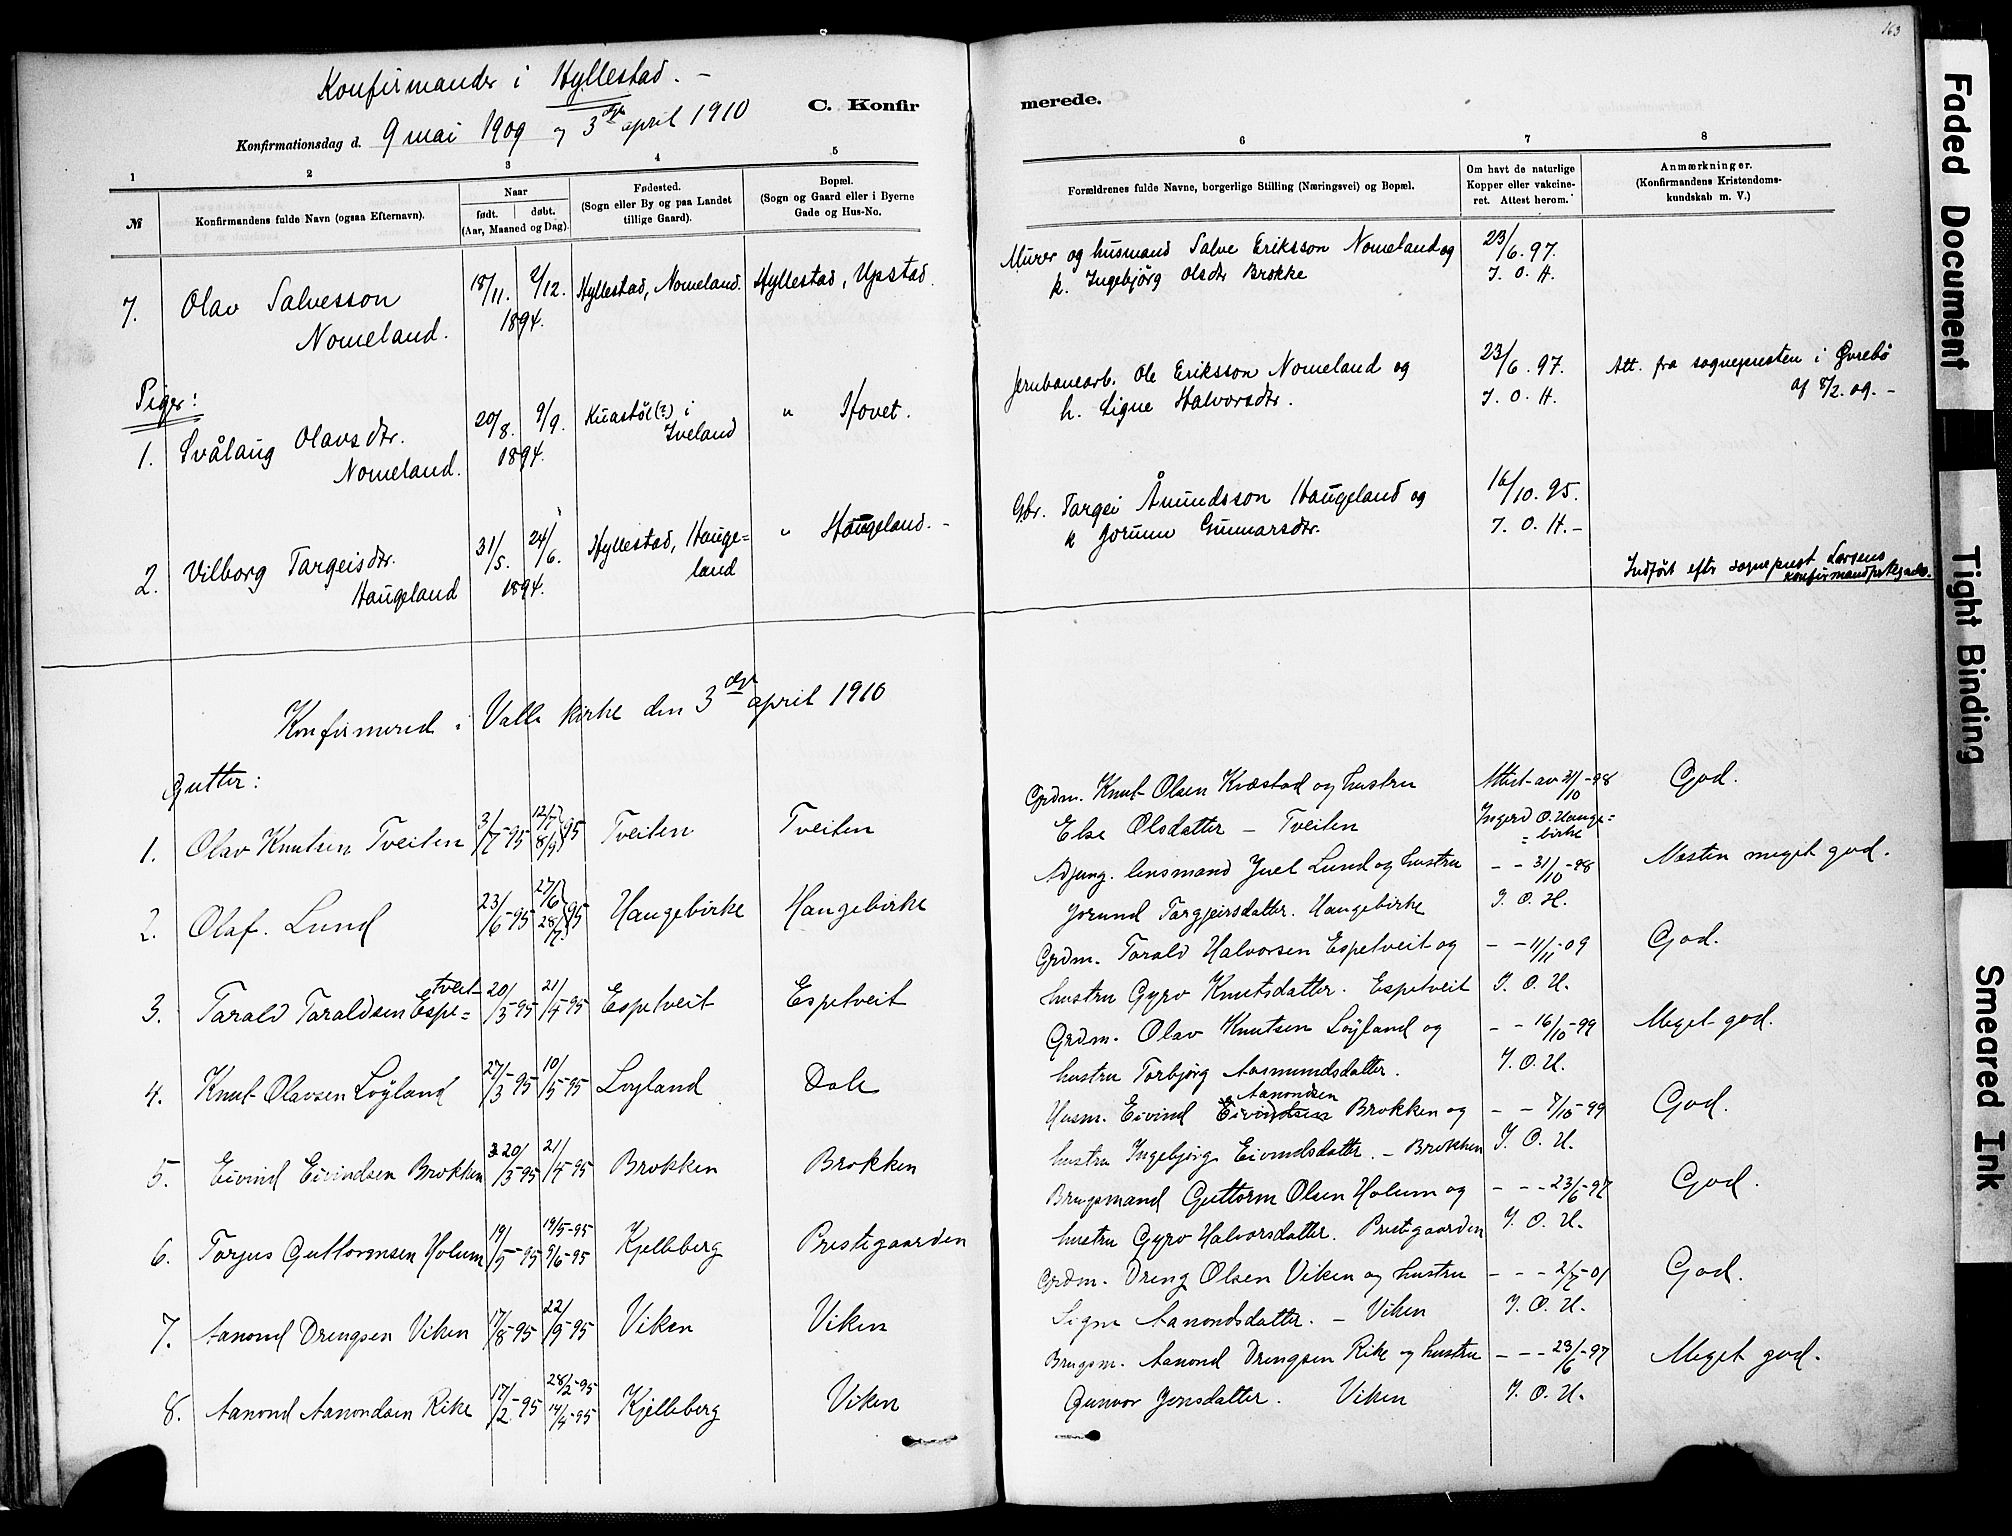 163
Konfirmander i Hyllestad. -
Konfirmationsdag d. 9 mai 1909 og 3dje april 1910
C. Konfir
merede.
1 2 3 4 5 6 7 8
№
Konfirmandens fulde Navn (ogsaa Efternavn).
Naar
født. døbt.
(Aar, Maaned og Dag).
Fødested.
(Sogn eller By og paa Landet
tillige Gaard).
Bopæl.
(Sogn og Gaard eller i Byerne
Gade og Hus-No.
Forældrenes fulde Navne, borgerlige Stilling (Næringsvei) og Bopæl.
Om havt de naturlige
Kopper eller vakcine-
ret. Attest herom.
Anmærkninger.
(Konfirmandens Kristendoms-
kundskab m. V.)
7. Olav Salvesson 18/11. 2/12. Hyllestad, Nomeland. Hyllestad, Upstad. Murer og husmand Salve Eriksson Nomeland og 23/6.97.
Nomeland. 1894. k. Ingebjørg Olsdtr Brokke J. O. H.
Piger:
1. Svålaug Olavsdtr. 20/8. 9/9. Kuastøl(?) i " Hovet. Jernbanearb. Ole Eriksson Nomeland og 23/6.97. Att. fra sognepresten i Øvrebø
Nomeland. 1894. Iveland h. Signe Halvorsdtr. J. O. H. af 8/2.09. -
2. Vilborg Targeisdtr. 31/5. 24/6. Hyllestad, Hauge= " Haugeland. - Gbr. Targei Åmundsson Haugeland og 16/10.95.
Haugeland 1894. land k Jorunn Gunnarsdtr. J. O. H. -
Indført efter sogneprest Larsens
konfirmandprotokol.
Konfirmered i Valle kirke den 3dje april 1910
Gutter:
1. Olav Knutsen Tveiten 3/7-95 12/7 8/9 95 Tveiten Tveiten Grdm. Knut Olsen Kvæstad og hustru Attest av 31/10-98 God.
Else Olsdatter - Tveiten Ingerd O. Hauge=
=birke
2. Olaf. Lund 23/6-95 27/6 28/7 95 Haugebirke Haugebirke Adjung. lensmand Juel Lund og hustru - - 31/10-98 Næsten meget god.
Jorund Targjeirsdatter. Haugebirke J. O. H.
3. Tarald Taraldsen Espe= tveit 20/3-95 21/4-95 Espetveit Espetveit Grdm. Tarald Halvorsen Espetveit og - - 11/11-09 God.
hustru Gyro Knutsdatter. Espetveit J. O. H.
4. Knut Olavsen Løyland 27/3-95 10/5-95 Løyland Dale Grdm. Olav Knutsen Løyland og - - 16/10-99 Meget god.
hustru Torbjørg Aasmundsdatter. J. O. H.
5. Eivind Eivindsen Brokken 20/3-95 21/4-95 Brokken Brokken Husm. Eivind Eivindsen Aanondsen Brokken og - - 7/10-99 God.
hustru Ingebjørg Eivindsdatter. - Brokken J. O. H.
6. Torjus Guttormsen Holum 19/5-95 19/5-95 9/6-95 Kjelleberg Prestegaarden Brugsmand Guttorm Olsen Holum og - - - 23/6-97 God.
hustru Gyro Halvorsdatter. Prestegaarden J. O. H.
7. Aanond Drengsen Viken 17/8-95 22/9-95 Viken Viken Grdm. Dreng Olsen Viken og hustru - - - 2/7-01 God.
Signe Aanondsdatter. - Viken J. O. H.
8. Aanond Aanondsen Rike 17/2-95 28/2-95 14/4-95 Kjelleberg Viken Brugsm. Aanond Drengsen Rike og hustru - - - 23/6-97 Meget god.
Gunvor Jonsdatter. Viken J. O. H.
Faded Document
Tight Binding
Smeared Ink